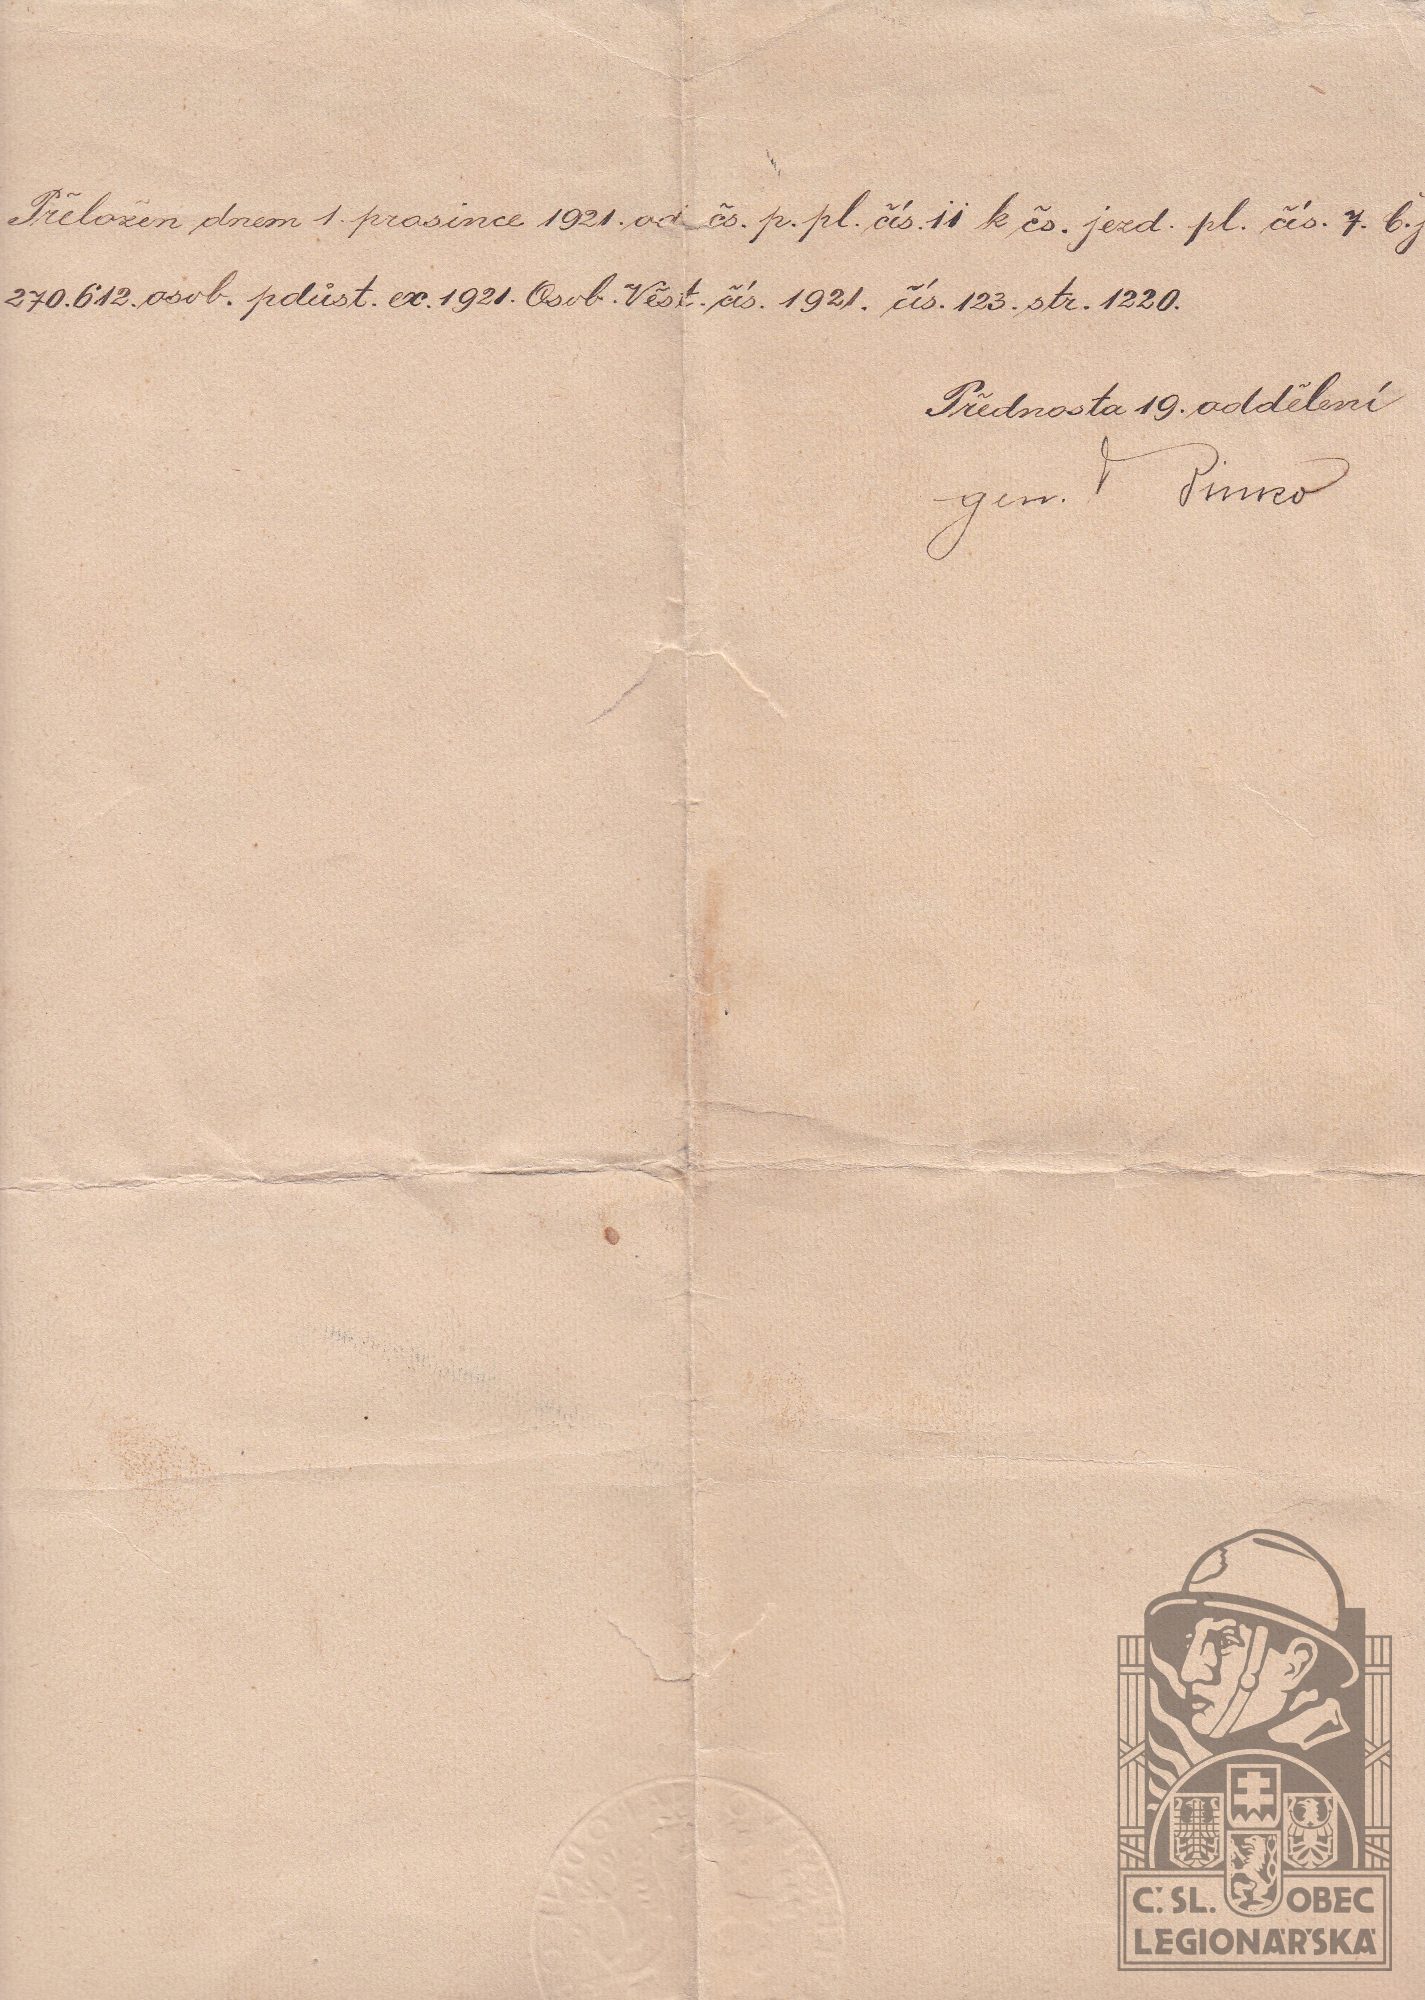 Přeložen dnem 1. prosince 1921. od čs. p. pl. čís. 11 k čs. jezd. pl. čís. 7. č.j
270.612. osob. pdůst. ex. 1921. Osob. Věst. čís. 1921. čís. 123. str. 1220.
Přednosta 19. oddělení
gen.
Č. SL. OBEC
LEGIONÁŘSKÁ